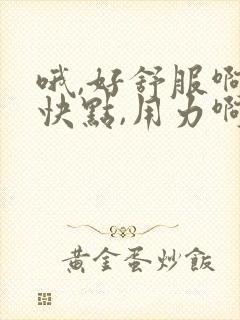 哦,好舒服啊
快點,用力啊
黃金蛋炒飯